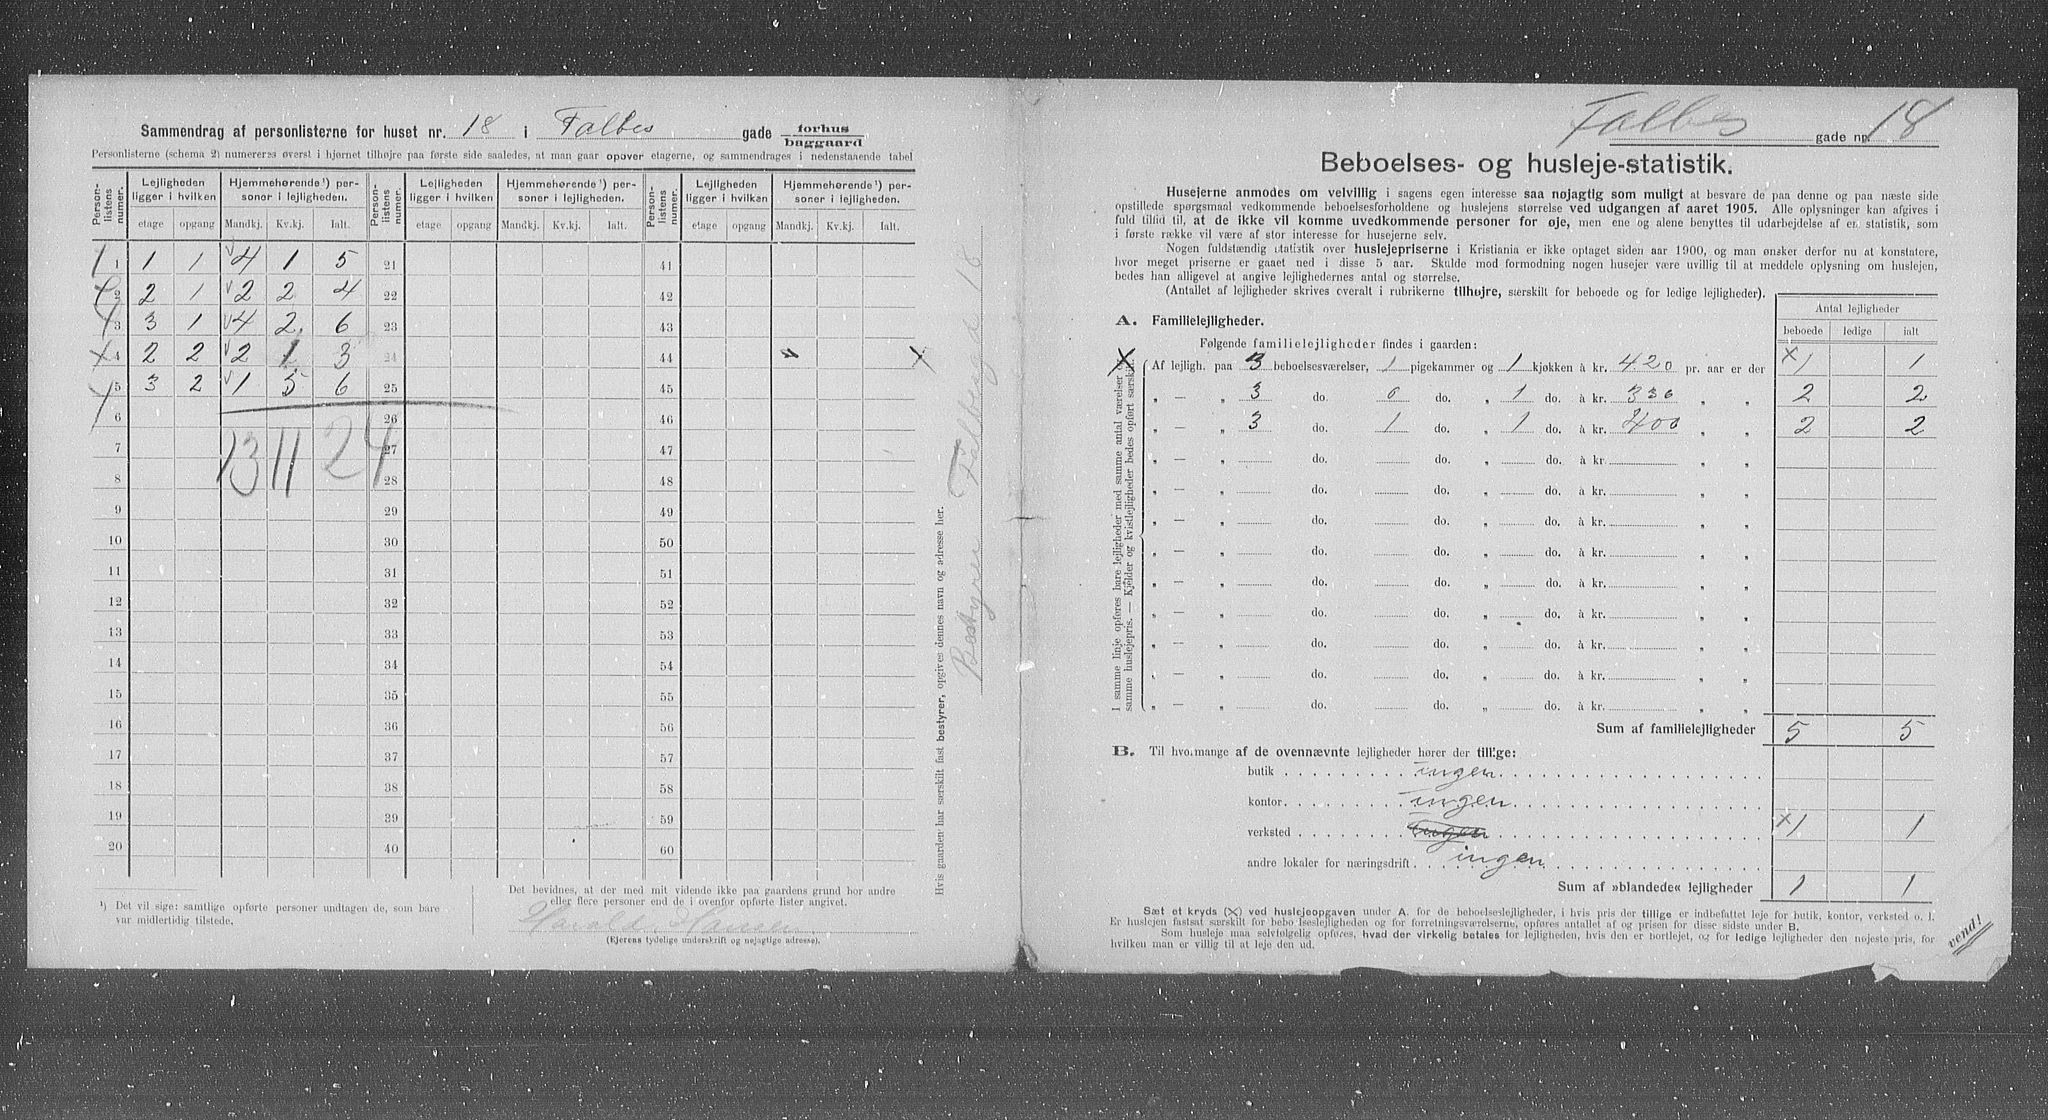 Sammendrag af personlisterne for huset nr. 18 i Falbes gade forhus
baggaard
Personlisterne (schema 2) numereres øverst i hjørnet tilhøjre paa første side saaledes, at man gaar opover etagerne, og sammendrages i nedenstaaende tabel
Person-listens numer. Lejligheden ligger i hvilken Hjemmehørende¹) personer i lejligheden. Person-listens numer. Lejligheden ligger i hvilken Hjemmehørende¹) personer i lejligheden. Person-listens numer. Lejligheden ligger i hvilken Hjemmehørende¹) personer i lejligheden.
etage opgang Mandkj. Kv.kj. Ialt. etage opgang Mandkj. Kv.kj. Ialt. etage opgang Mandkj. Kv.kj. Ialt.
1 1 1 4 1 5 21 41
2 2 1 2 2 4 22 42
3 3 1 4 2 6 23 43
4 2 2 2 1 3 24 44
5 3 2 1 5 6 25 45
6 26 46
7 13 11 24 27 47
8 28 48
9 29 49
10 30 50
11 31 51
12 32 52
13 33 53
14 34 54
15 35 55
16 36 56
17 37 57
18 38 58
19 39 59
20 40 60
¹) Det vil sige: samtlige opførte personer undtagen de, som bare
var midlertidig tilstede.
Det bevidnes, at der med mit vidende ikke paa gaardens grund bor andre
eller flere personer end de i ovenfor opførte lister angivet.
Harald Hansen
(Ejerens tydelige underskrift og nøjagtige adresse).
Hvis gaarden har særskilt fast bestyrer, opgives dennes navn og adresse her.
Bestyrer Falbesgd 18
Falbes gade nr. 18
Beboelses- og husleje-statistik.
Husejerne anmodes om velvillig i sagens egen interesse saa nøjagtig som muligt at besvare de paa denne og paa næste side
opstillede spørgsmaal vedkommende beboelsesforholdene og huslejens størrelse ved udgangen af aaret 1905. Alle oplysninger kan afgives i
fuld tillid til, at de ikke vil komme uvedkommende personer for øje, men ene og alene benyttes til udarbejdelse af en statistik, som
i første række vil være af stor interesse for husejerne selv.
Nogen fuldstændig statistik over huslejepriserne i Kristiania er ikke optaget siden aar 1900, og man ønsker derfor nu at konstatere,
hvor meget priserne er gaaet ned i disse 5 aar. Skulde mod formodning nogen husejer være uvillig til at meddele oplysning om huslejen,
bedes han alligevel at angive lejlighedernes antal og størrelse.
(Antallet af lejligheder skrives overalt i rubrikerne tilhøjre, særskilt for beboede og for ledige lejligheder).
Antal lejligheder
beboede ledige ialt
A. Familielejligheder.
Følgende familielejligheder findes i gaarden:
I samme linje opføres bare lejligheder med samme antal værelser og
samme huslejepris. — Kjelder og kvistlejligheder bedes opført særskilt.
Af lejligh. paa 3 beboelsesværelser, 1 pigekammer og 1 kjøkken à kr. 420 pr. aar er der × 1 1
„ — „ 3 do. 0 do. „ 1 do. à kr. 330 „ „ 2 2
„ — „ 3 do. 1 do. „ 1 do. à kr. 400 „ „ 2 2
„ — „ do. do. „ do. à kr. „ „
„ — „ do. do. „ do. à kr. „ „
„ — „ do. do. „ do. à kr. „ „
„ — „ do. do. „ do. à kr. „ „
„ — „ do. do. „ do. à kr. „ „
„ — „ do. do. „ do. à kr. „ „
„ — „ do. do. „ do. à kr. „ „
„ — „ do. do. „ do. à kr. „ „
„ — „ do. do. „ do. à kr. „ „
Sum af familielejligheder 5 5
B. Til hvormange af de ovennævnte lejligheder hører der tillige:
butik ingen
kontor ingen
verksted ingen × 1 1
andre lokaler for næringsdrift ingen
Sum af »blandede« lejligheder 1 1
Sæt et kryds (×) ved huslejeopgaven under A. for de beboelseslejligheder, i hvis pris der tillige er indbefattet leje for butik, kontor, verksted o. l.
Er huslejen fastsat særskilt for beboelseslejligheden og for forretningsværelserne, opføres antallet af og prisen for disse sidste under B.
Som husleje maa selvfølgelig opføres, hvad der virkelig betales for lejligheden, hvis den er bortlejet, og for ledige lejligheder den nøjeste pris, for
hvilken man er villig til at leje den ud.
vend!